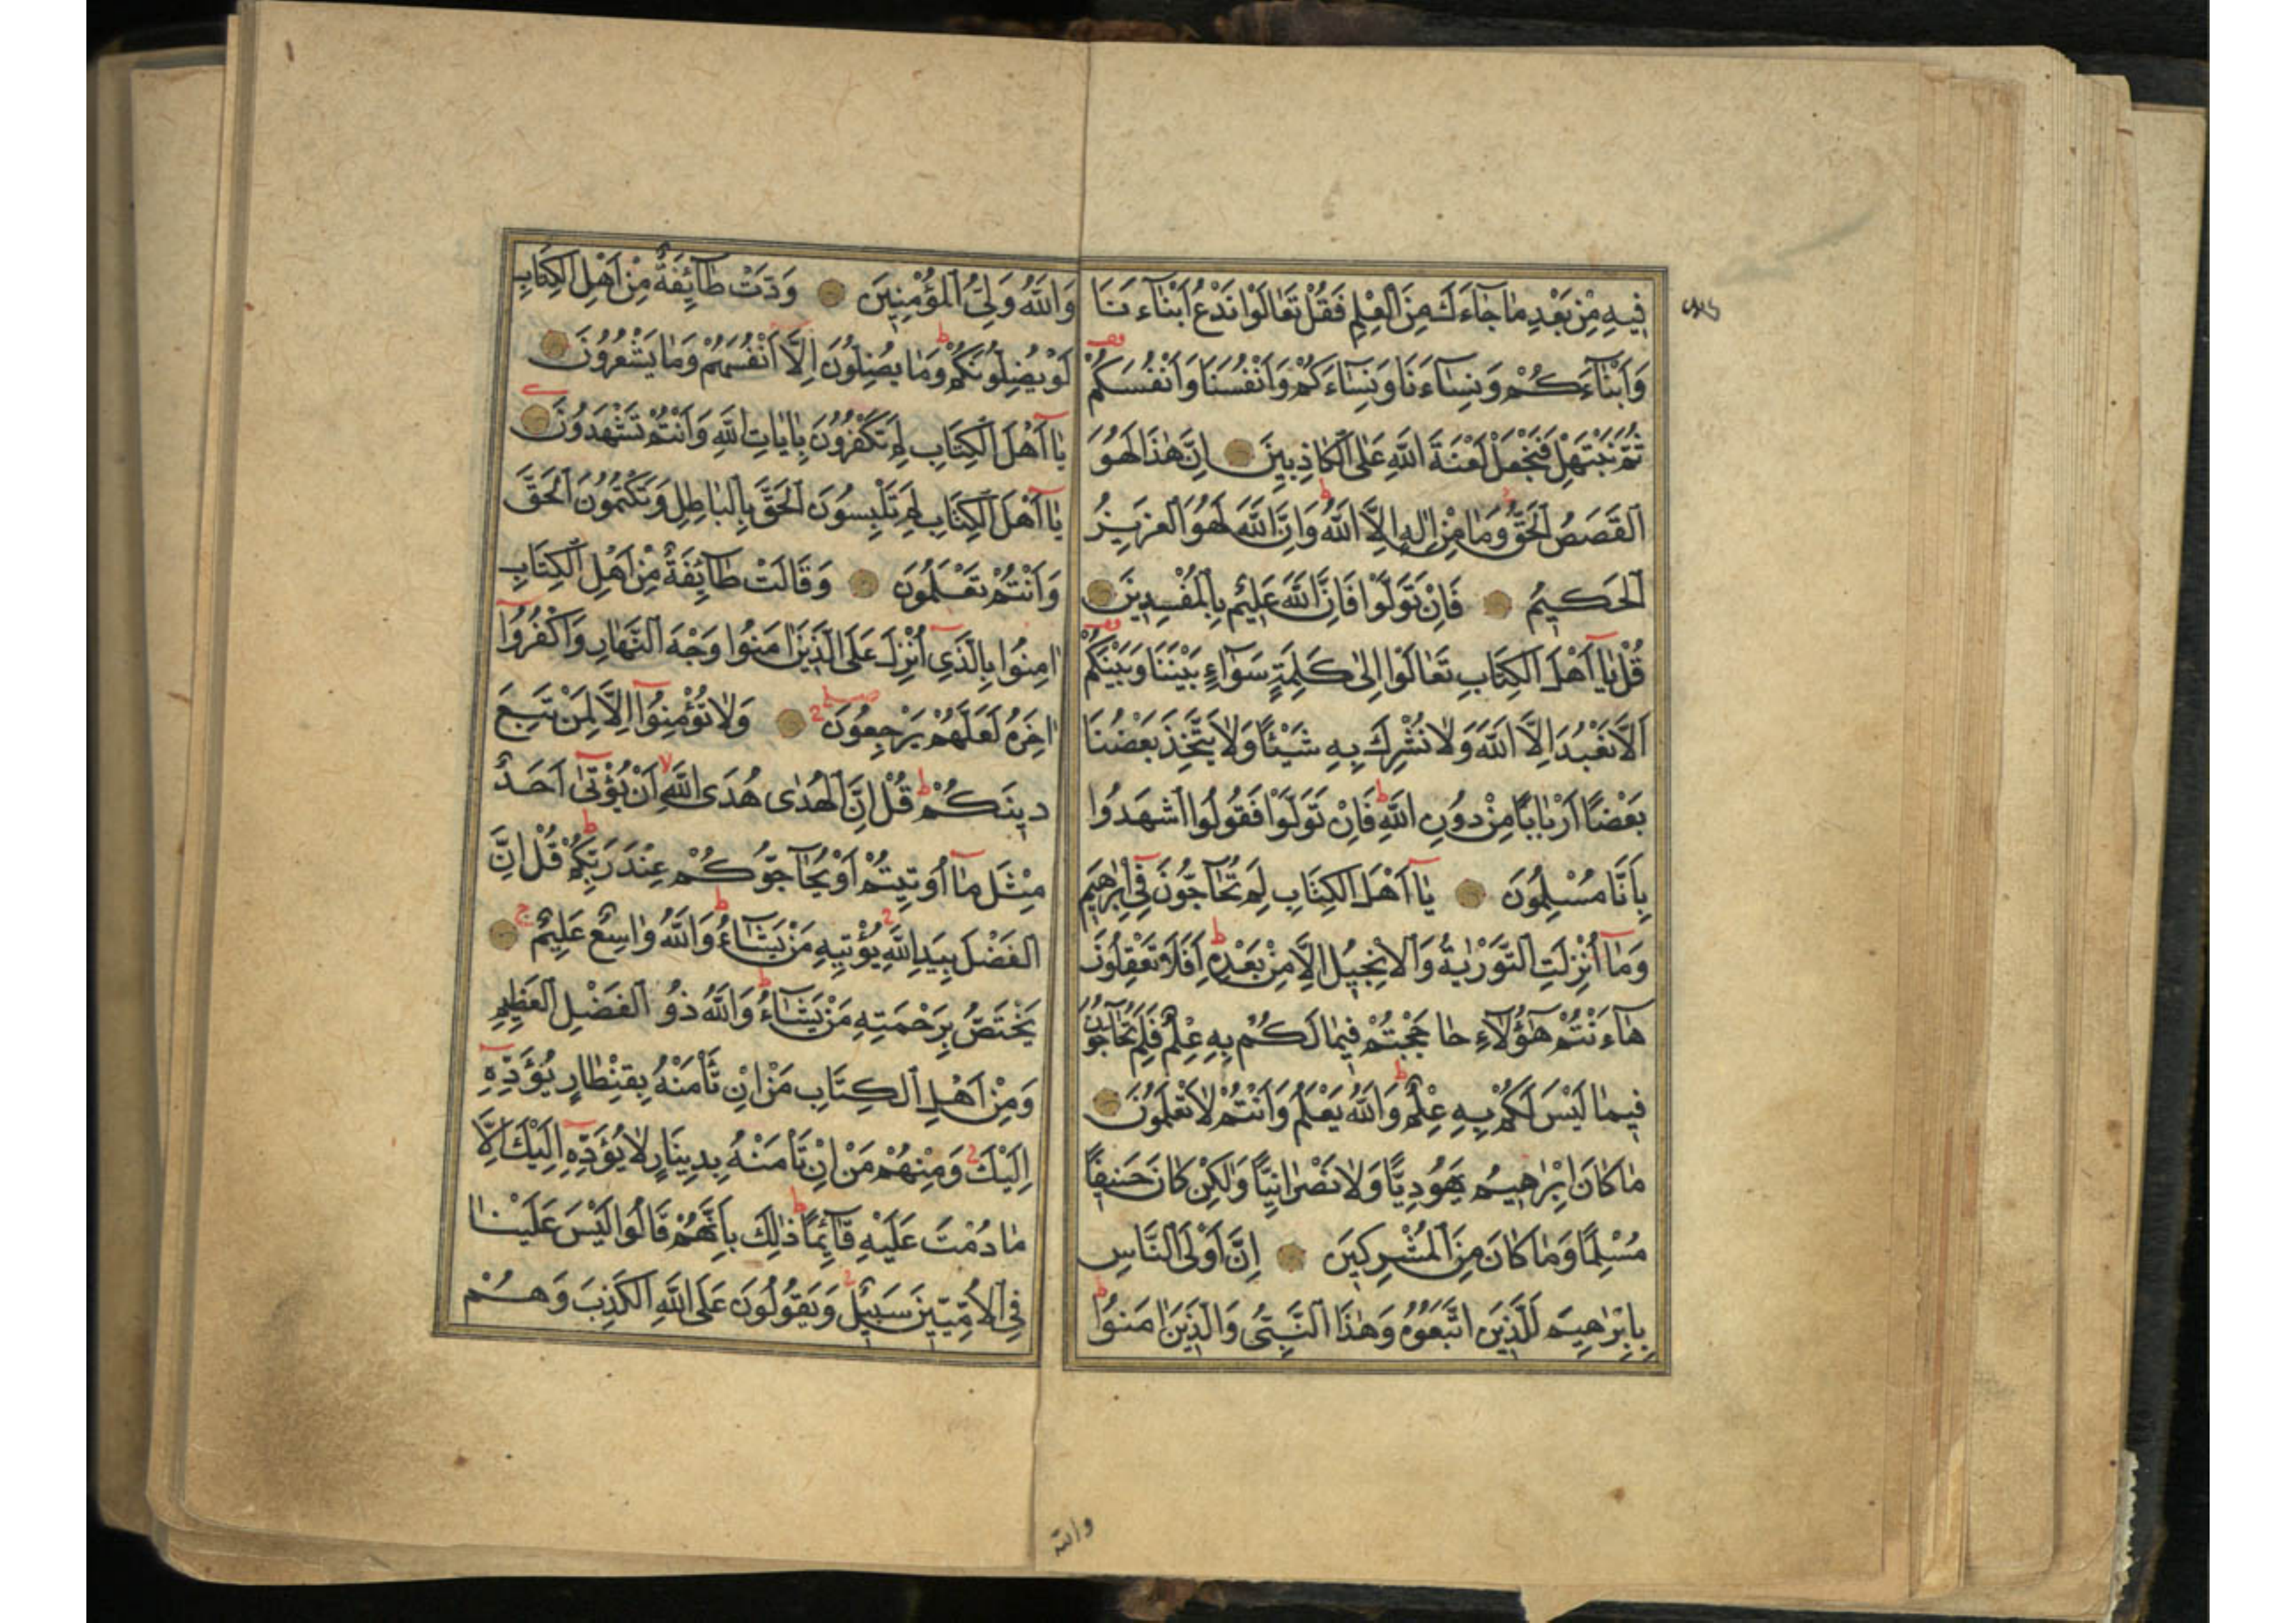 فِيهِ مِنْ بَعْدِ مَا جَاءَكَ مِنَ الْعِلْمِ فَقُلْ تَعَالَوْا نَدْعُ اَبْنَاءَنَا
وَاَبْنَاءَكُمْ وَنِسَاءَنَا وَنِسَاءَكُمْ وَاَنْفُسَنَا وَاَنْفُسَكُمْ
ثُمَّ نَبْتَهِلْ فَنَجْعَلْ لَعْنَةَ اللَّهِ عَلَى الْكَاذِبِينَ اِنَّ هٰذَا لَهُوَ
الْقَصَصُ الْحَقُّ وَمَا مِنْ اِلٰهٍ اِلَّا اللَّهُ وَاِنَّ اللَّهَ لَهُوَ الْعَزِيزُ
الْحَكِيمُ فَاِنْ تَوَلَّوْا فَاِنَّ اللَّهَ عَلِيمٌ بِالْمُفْسِدِينَ
قُلْ يَا اَهْلَ الْكِتَابِ تَعَالَوْا اِلٰى كَلِمَةٍ سَوَاءٍ بَيْنَنَا وَبَيْنَكُمْ
اَلَّا نَعْبُدَ اِلَّا اللَّهَ وَلَا نُشْرِكَ بِهِ شَيْئًا وَلَا يَتَّخِذَ بَعْضُنَا
بَعْضًا اَرْبَابًا مِنْ دُونِ اللَّهِ فَاِنْ تَوَلَّوْا فَقُولُوا اشْهَدُوا
بِاَنَّا مُسْلِمُونَ يَا اَهْلَ الْكِتَابِ لِمَ تُحَاجُّونَ فِي اِبْرٰهِيمَ
وَمَا اُنْزِلَتِ التَّوْرٰيةُ وَالْاِنْجِيلُ اِلَّا مِنْ بَعْدِهِ اَفَلَا تَعْقِلُونَ
هَاءَنْتُمْ هٰؤُلَاءِ حَاجَجْتُمْ فِيمَا لَكُمْ بِهِ عِلْمٌ فَلِمَ تُحَاجُّونَ
فِيمَا لَيْسَ لَكُمْ بِهِ عِلْمٌ وَاللَّهُ يَعْلَمُ وَاَنْتُمْ لَا تَعْلَمُونَ
مَا كَانَ اِبْرٰهِيمُ يَهُودِيًّا وَلَا نَصْرَانِيًّا وَلٰكِنْ كَانَ حَنِيفًا
مُسْلِمًا وَمَا كَانَ مِنَ الْمُشْرِكِينَ اِنَّ اَوْلَى النَّاسِ
بِاِبْرٰهِيمَ لَلَّذِينَ اتَّبَعُوهُ وَهٰذَا النَّبِيُّ وَالَّذِينَ اٰمَنُوا
والله
وَاللَّهُ وَلِيُّ الْمُؤْمِنِينَ وَدَّتْ طَائِفَةٌ مِنْ اَهْلِ الْكِتَابِ
لَوْ يُضِلُّونَكُمْ وَمَا يُضِلُّونَ اِلَّا اَنْفُسَهُمْ وَمَا يَشْعُرُونَ
يَا اَهْلَ الْكِتَابِ لِمَ تَكْفُرُونَ بِاٰيَاتِ اللَّهِ وَاَنْتُمْ تَشْهَدُونَ
يَا اَهْلَ الْكِتَابِ لِمَ تَلْبِسُونَ الْحَقَّ بِالْبَاطِلِ وَتَكْتُمُونَ الْحَقَّ
وَاَنْتُمْ تَعْلَمُونَ وَقَالَتْ طَائِفَةٌ مِنْ اَهْلِ الْكِتَابِ
اٰمِنُوا بِالَّذِي اُنْزِلَ عَلَى الَّذِينَ اٰمَنُوا وَجْهَ النَّهَارِ وَاكْفُرُوا
اٰخِرَهُ لَعَلَّهُمْ يَرْجِعُونَ وَلَا تُؤْمِنُوا اِلَّا لِمَنْ تَبِعَ
دِينَكُمْ قُلْ اِنَّ الْهُدٰى هُدَى اللَّهِ اَنْ يُؤْتٰى اَحَدٌ
مِثْلَ مَا اُوتِيتُمْ اَوْ يُحَاجُّوكُمْ عِنْدَ رَبِّكُمْ قُلْ اِنَّ
الْفَضْلَ بِيَدِ اللَّهِ يُؤْتِيهِ مَنْ يَشَاءُ وَاللَّهُ وَاسِعٌ عَلِيمٌ
يَخْتَصُّ بِرَحْمَتِهِ مَنْ يَشَاءُ وَاللَّهُ ذُو الْفَضْلِ الْعَظِيمِ
وَمِنْ اَهْلِ الْكِتَابِ مَنْ اِنْ تَأْمَنْهُ بِقِنْطَارٍ يُؤَدِّهِ
اِلَيْكَ وَمِنْهُمْ مَنْ اِنْ تَأْمَنْهُ بِدِينَارٍ لَا يُؤَدِّهِ اِلَيْكَ اِلَّا
مَا دُمْتَ عَلَيْهِ قَائِمًا ذٰلِكَ بِاَنَّهُمْ قَالُوا لَيْسَ عَلَيْنَا
فِي الْاُمِّيِّينَ سَبِيلٌ وَيَقُولُونَ عَلَى اللَّهِ الْكَذِبَ وَهُمْ